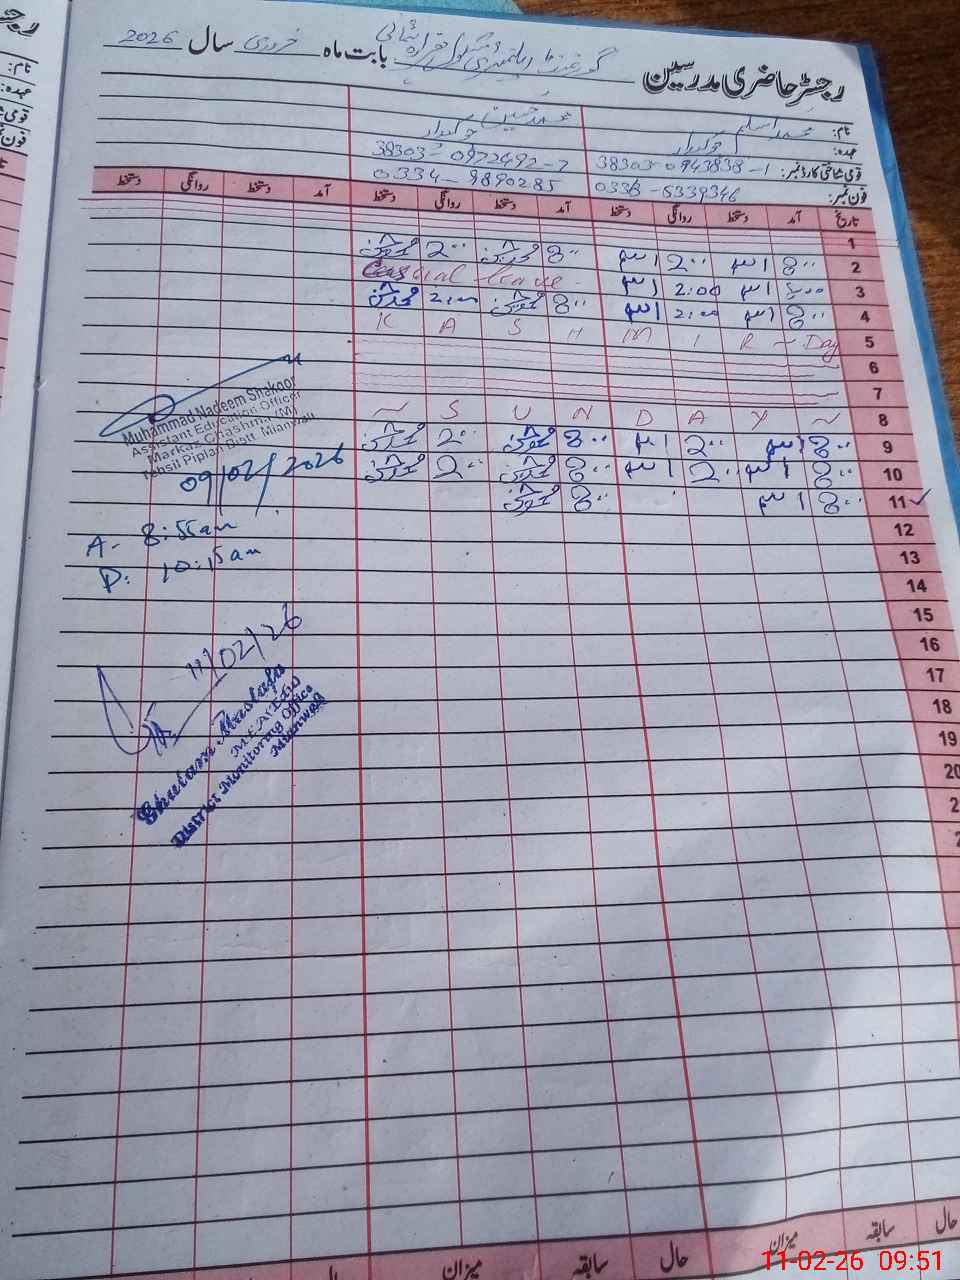 رجسٹر حاضری مدرسین گورنمنٹ ایلیمنٹری سکول بابت ماہ فروری سال 2026
نام: محمد اسلم محمد حسین
عہدہ: چوکیدار چوکیدار
قومی شناختی کارڈ نمبر: 38303-0943838-1 38303-0972492-7
فون نمبر: 0336-5339346 0334-9890285
تاریخ آمد دستخط روانگی دستخط آمد دستخط روانگی دستخط آمد دستخط روانگی دستخط
1
2 8:00 2:00 8:00 2:00
3 8:00 2:00 Casual leave
4 8:00 2:00 8:00 2:00
5 K A S H M I R ~ Day
6
7
8 ~ S U N D A Y ~
9 8:00 2:00 8:00 2:00
10 8:00 2:00 8:00 2:00
11 8:00 8:00
12
13
14
15
16
17
18
19
20
2
2
Muhammad Nadeem Shakoor
Assistant Education Officer
Markaz Chashma (M)
Tehsil Piplan Distt. Mianwali
09/02/2026
A- 8:55am
D: 10:15am
11/02/26
Ghulam Mustafa
District Monitoring Office
Mianwali
حال سابقہ میزان حال سابقہ میزان
11-02-26 09:51